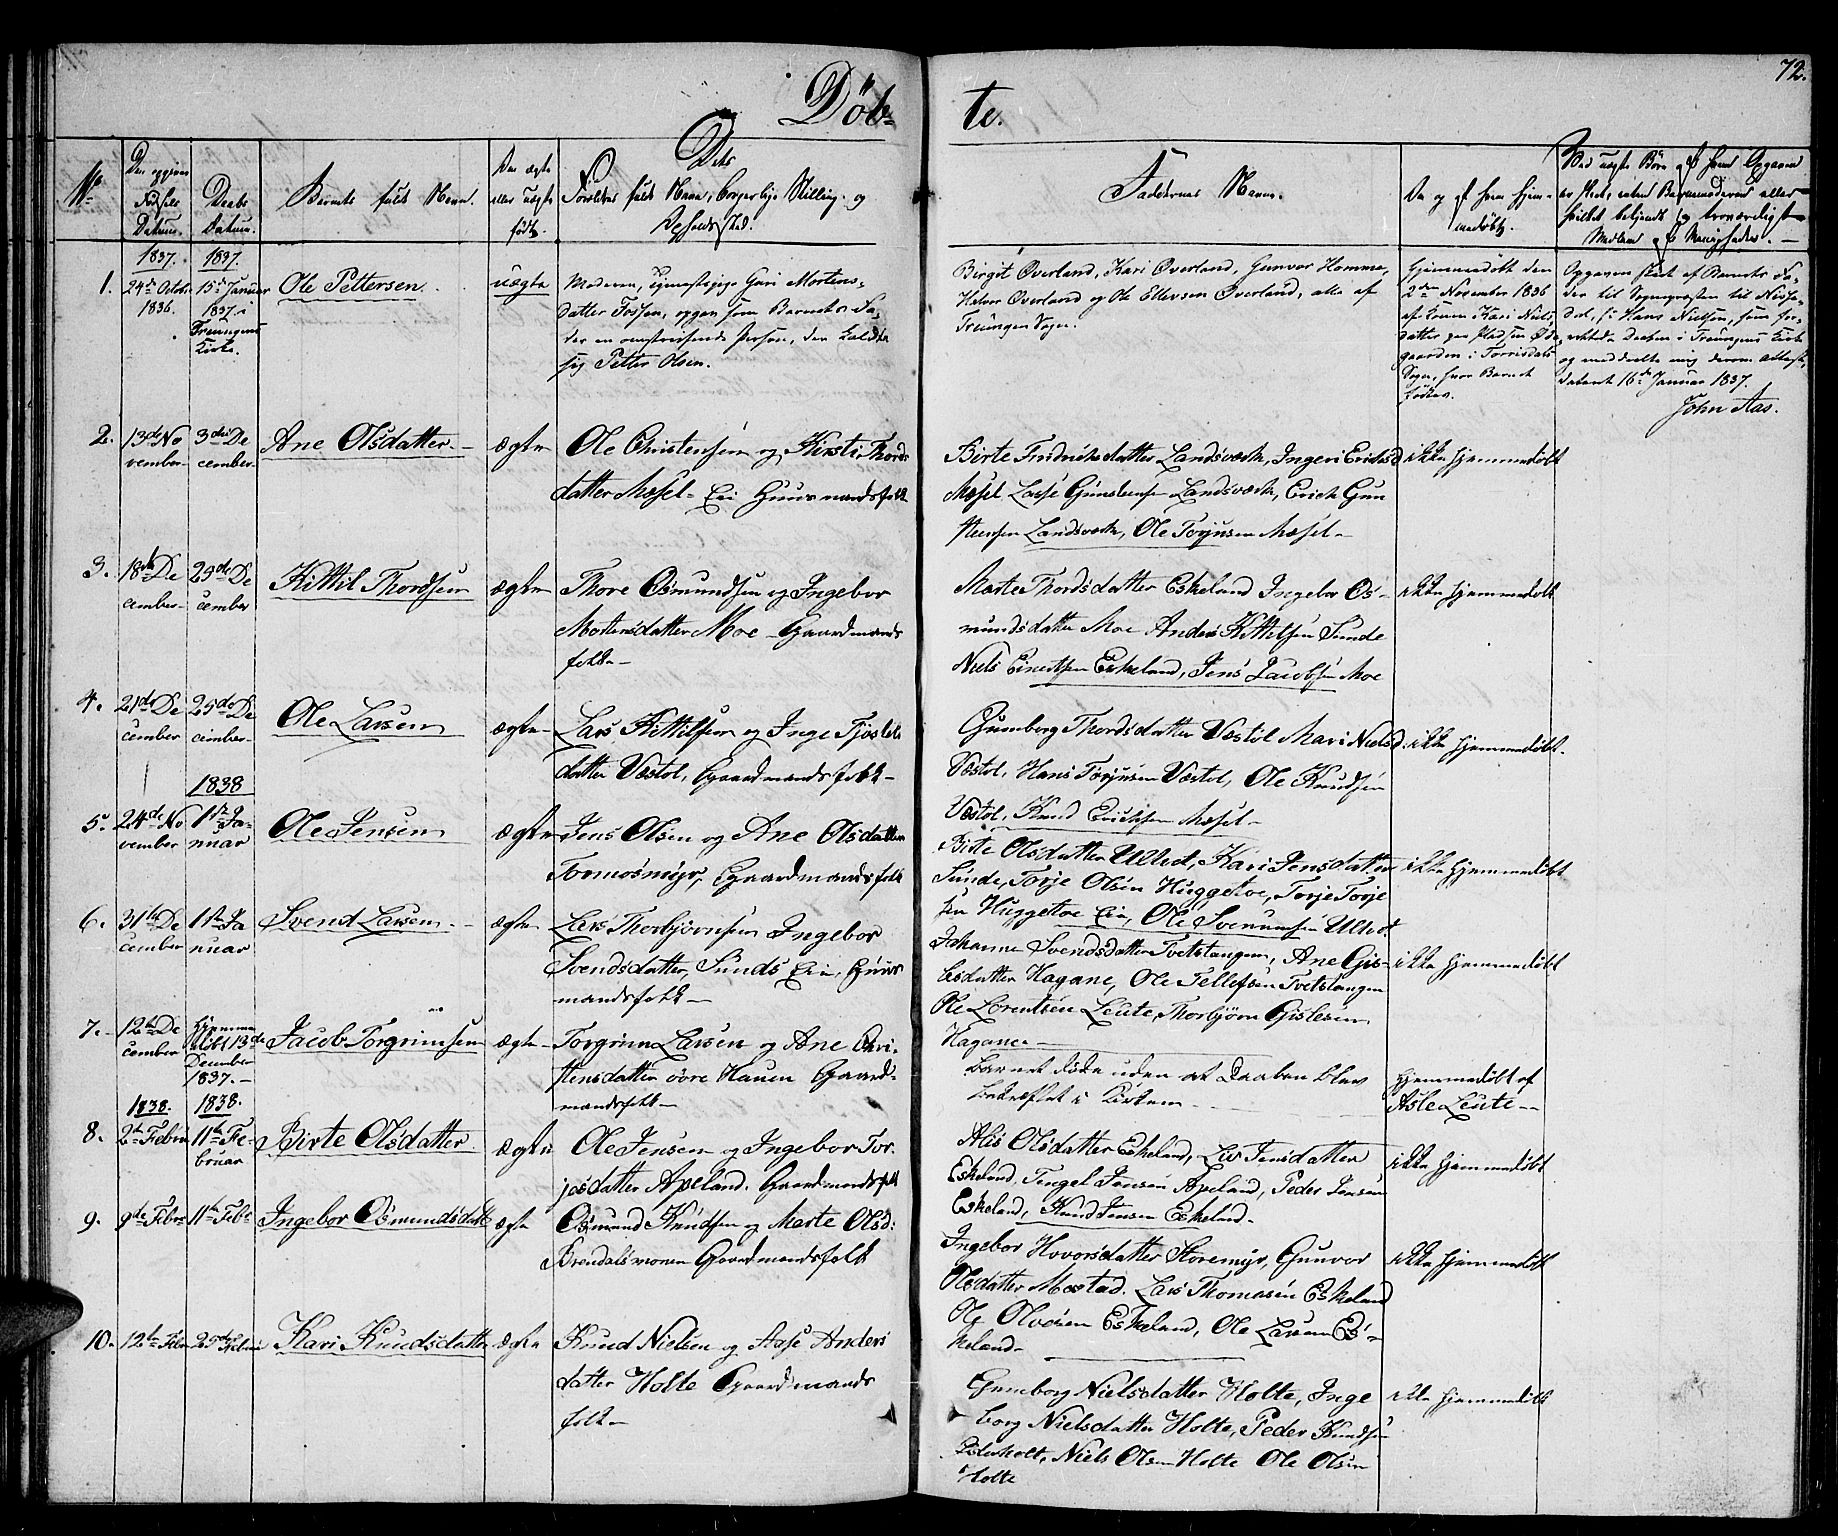 72.
Döb-
te.
No
Den opgivne
Fødsels
Datum.
Daabs
Datum.
Barnets fulde Navn.
Om ægte
eller uægte
født.
Dets
Forældres fulde Navn, borgerlige Stilling og
Opholdssted.
Faddernes Navne.
Om og af hvem hjem-
medøbt.
Ved uægte Børn af hvem Opgaven
1837. 1837.
1. 24de Octobr 1836. 15de Januar 1837. Treungens Kirke. Ole Pettersen. uægte
Moderen, Guri Mortens-
datter Fossen, opgav som Barnets Fa-
der en omstreifende Person, der kaldte
sig Petter Olsen.
Birgit Øverland, Kari Øverland, Gunvor Homme,
Halvor Øverland og Ole Ellevsen Øverland, alle af
Treungen Sogn.
Hjemmedøbt den
2den November 1836
af Konen Kari Niels
datter paa Pladsen Øde
gaarden i Torrisdals
Sogn, hvor Barnet
fødtes.
Opgaven skeet af Barnets Fa-
der til Sognepræsten til Nisse-
dal, Hr Hans Nielsen, som for-
rettede Daaben i Treungens Kirke
og meddeelte mig derom Attest,
dateret 16de Januar 1837.
John Aas.
2. 13de No
vember 3die De
cember Ane Olsdatter ægte Ole Christensen og Kirsti Thords
datter Mæsel - Eie Huusmandsfolk
Birte Fredriksdatter Landsværk, Ingeri Ericksd
Mæsel Lasse Gundersen Landsværk, Erich Gun
steensen Landsværk, Ole Torjusen Mæsel -
ikke hjemmedøbt
3. 18de De
cember 25de De
cember Kittil Thordsen ægte Thore Osmundsen og Ingebor
Mortensdatter Moe - Gaardmands
folk -
Marte Thordsdatter Eskeland Ingebor Os-
mundsdatter Moe Anders Kittelsen Sunde
Niels Einertsen Eskeland, Jens Jacobsen Moe
ikke hjemmedøbt
4. 21de De
cember 25de De
cember Ole Larsen ægte Lars Kittilsen og Inge Tjöstels
datter Væstöl, Gaardmandsfolk -
Gunborg Thordsdatter Væstöl Mari Nielsd.
Væstöl, Hans Torjusen Væstöl, Ole Knudsen
Væstöl, Knud Ericksen Mæsel -
ikke hjemmedøbt.
1838
5. 24de No
vember 1ste Ja-
nuar Ole Jensen ægte Jens Olsen og Ane Olsdatter
Tormosmyr, Gaardmandsfolk
Birte Olsdatter Ulltvet, Kari Jensdatter
Sunde, Torje Olsen Huggetoe, Torje Torje
sen Huggetoe Eie, Ole Svenumsen Ulltvet
ikke hjemmedøbt
6. 31te De
cember 1ste Ja
nuar Svend Larsen ægte Lars Thorbjørnsen Ingebor
Svendsdatter, Sunds Eie, Huus
mandsfolk -
Johanne Svendsdatter Tvetstangen, Ane Gis-
lesdatter Hagane, Ole Tellefsen Tvetstangen
Ole Lorentsen Leute, Thorbjörn Gislesen
Hagane -
ikke hjemmedøbt
7. 12te De
cember Hjemme
døbt 13de
December
1837. - Jacob Torgrimsen ægte Torgrim Larsen og Ane Chri-
stensdatter øvre Hauen Gaard-
mandsfolk -
Barnet døde uden at Daaben blev
bekræftet i Kirken -
Hjemmedøbt af
Asle Leute -
1838. 1838.
8. 2den Febru 11te Fe-
bruar Birte Olsdatter ægte Ole Jensen og Ingebor Tor-
jesdatter Apeland. Gaardmandsfolk
Alis Olsdatter Eskeland, Liv Jensdatter
Eskeland, Tengel Jensen Apeland, Peder Jensen
Eskeland, Knud Jensen Eskeland -
ikke hjemmedøbt
9. 9de Febr 11te Febr Ingebor Osmundsdatt ægte Osmund Knudsen og Marte Olsd:
Brendalsmonen Gaardmandsfolk
Ingebor Hovorsdatter Storemyr, Gunvor
Olsdatter Mostad. Lars Thomasen Eskeland
Ole Olvdsen Eskeland, Ole Larsen Es-
keland -
ikke hjemmedøbt
10. 12te Febr 25de Febru Kari Knudsdatter ægte Knud Nielsen og Aase Anders
datter Holte Gaardmands
folk -
Gunborg Nielsdatter Holte, Inge
borg Nielsdatter Holte, Peder Knudsen
Niels Olsen Holte Ole Olsen
Holte
ikke hjemmedøbt